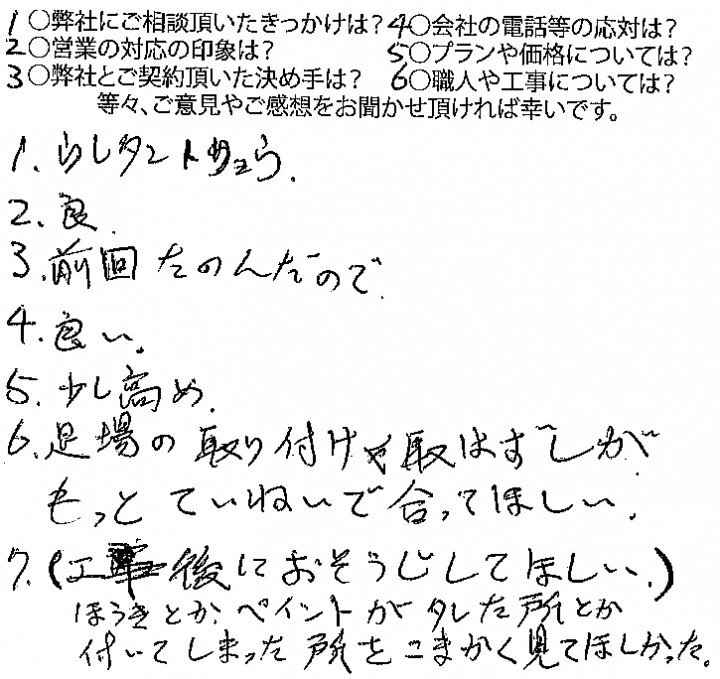 1○弊社にご相談頂いたきっかけは？4○会社の電話等の応対は？
2○営業の対応の印象は？ 5○プランや価格については？
3○弊社とご契約頂いた決め手は？ 6○職人や工事については？
等々、ご意見やご感想をお聞かせ頂ければ幸いです。
1.
2、良.
3.前回たのんだので.
4.良い。
5.少し高め.
6.足場の取り付けや取はずしが
もっとていねいで合ってほしい.
7.(工事後におそうじしてほしい.)
ほうきとか、ペイントがタレた所とか
付いてしまった所をこまかく見てほしかった。